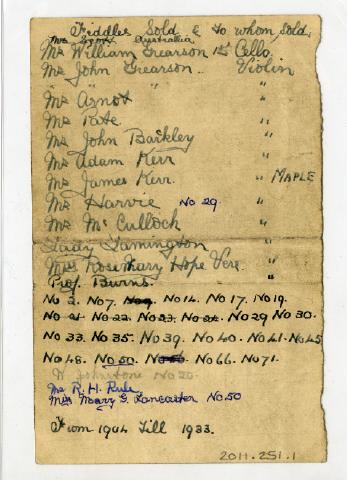 Fiddles Sold & to whom sold.
Australia
Mr William Grearson 1st Cello.
Mr John Grearson .. Violin
" " "
Mr Arnot "
Mr Pate "
Mr John Barkley "
Mr Adam Kerr "
Mr James Kerr. " MAPLE
Mr Harvie No 29. "
Mr McCulloch "
Lady Lamington "
Miss Rosemary Hope Vere. "
Prof. Burns. "
No 2. No 7. No 14. No 17. No 19.
No 21. No 22. No 23. No 24. No 29 No 30.
No 33. No 35. No 39. No 40. No 41. No 45
No 48. No 50. No 66. No 71.
W Johnstone No 20.
Mr R. H. Rule
Miss Mary G. Lancaster No 50
From 1904 Till 1933.
2011.251.1